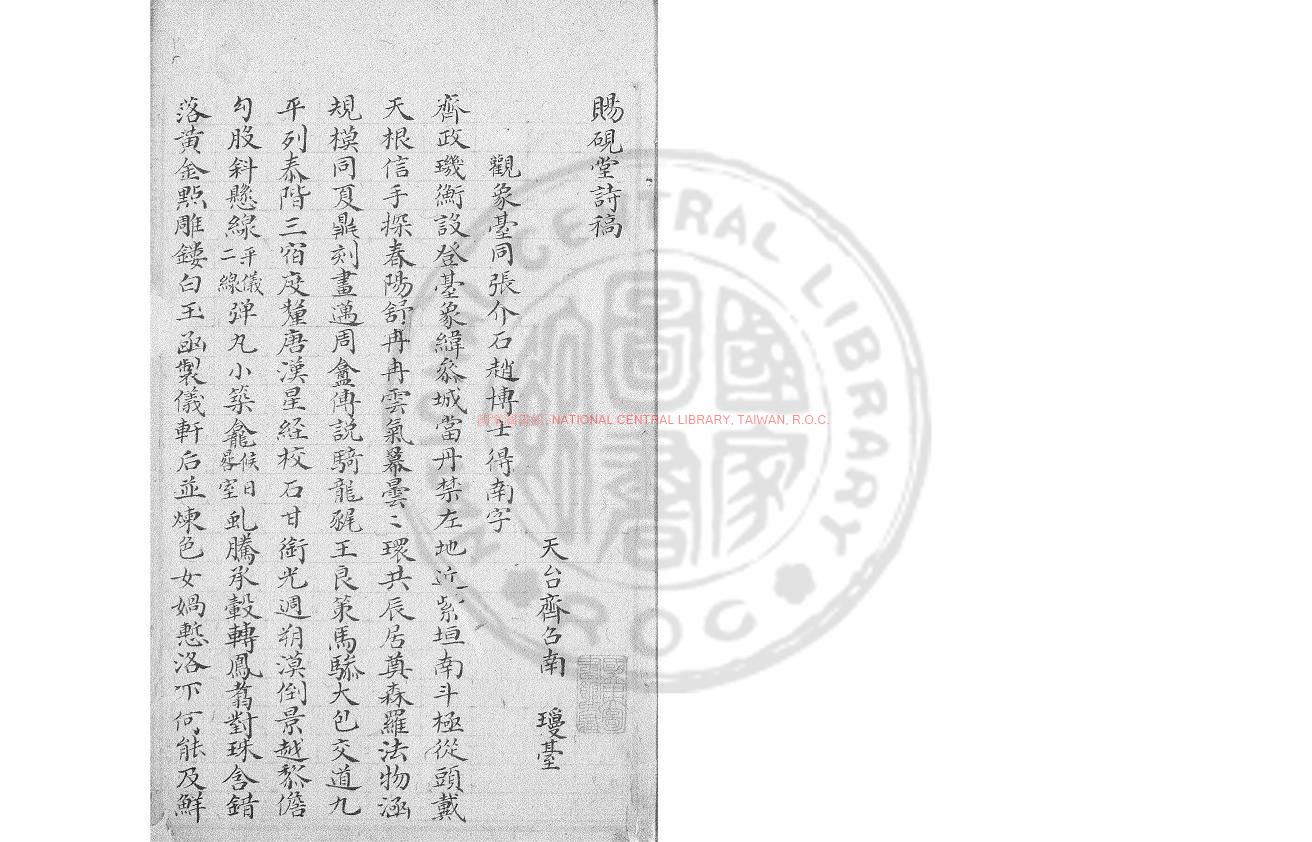 賜硯堂詩稿
天台齊召南 瓊臺
觀象臺同張介石趙博士得南字
齊政璣衡設登臺象緯叅城當丹禁左地近紫垣南斗極從頭戴
天根信手探春陽舒冉冉雲氣幕曇〻環共辰居奠森羅法物涵
規模同夏鼎刻畫邁周盦傅説騎龍尾王良策馬驂大包交道九
平列泰階三宿度釐唐漢星経校石甘銜光週朔漠倒景越黎儋
勾股斜懸線平儀二線彈丸小築龕候日晷室虬騰承轂轉鳳翥對珠含錯
落黄金㸃雕鏤白玉函製儀軒后並煉色女媧慙洛下何能及鮮
NATIONAL CENTRAL LIBRARY, TAIWAN, R.O.C.